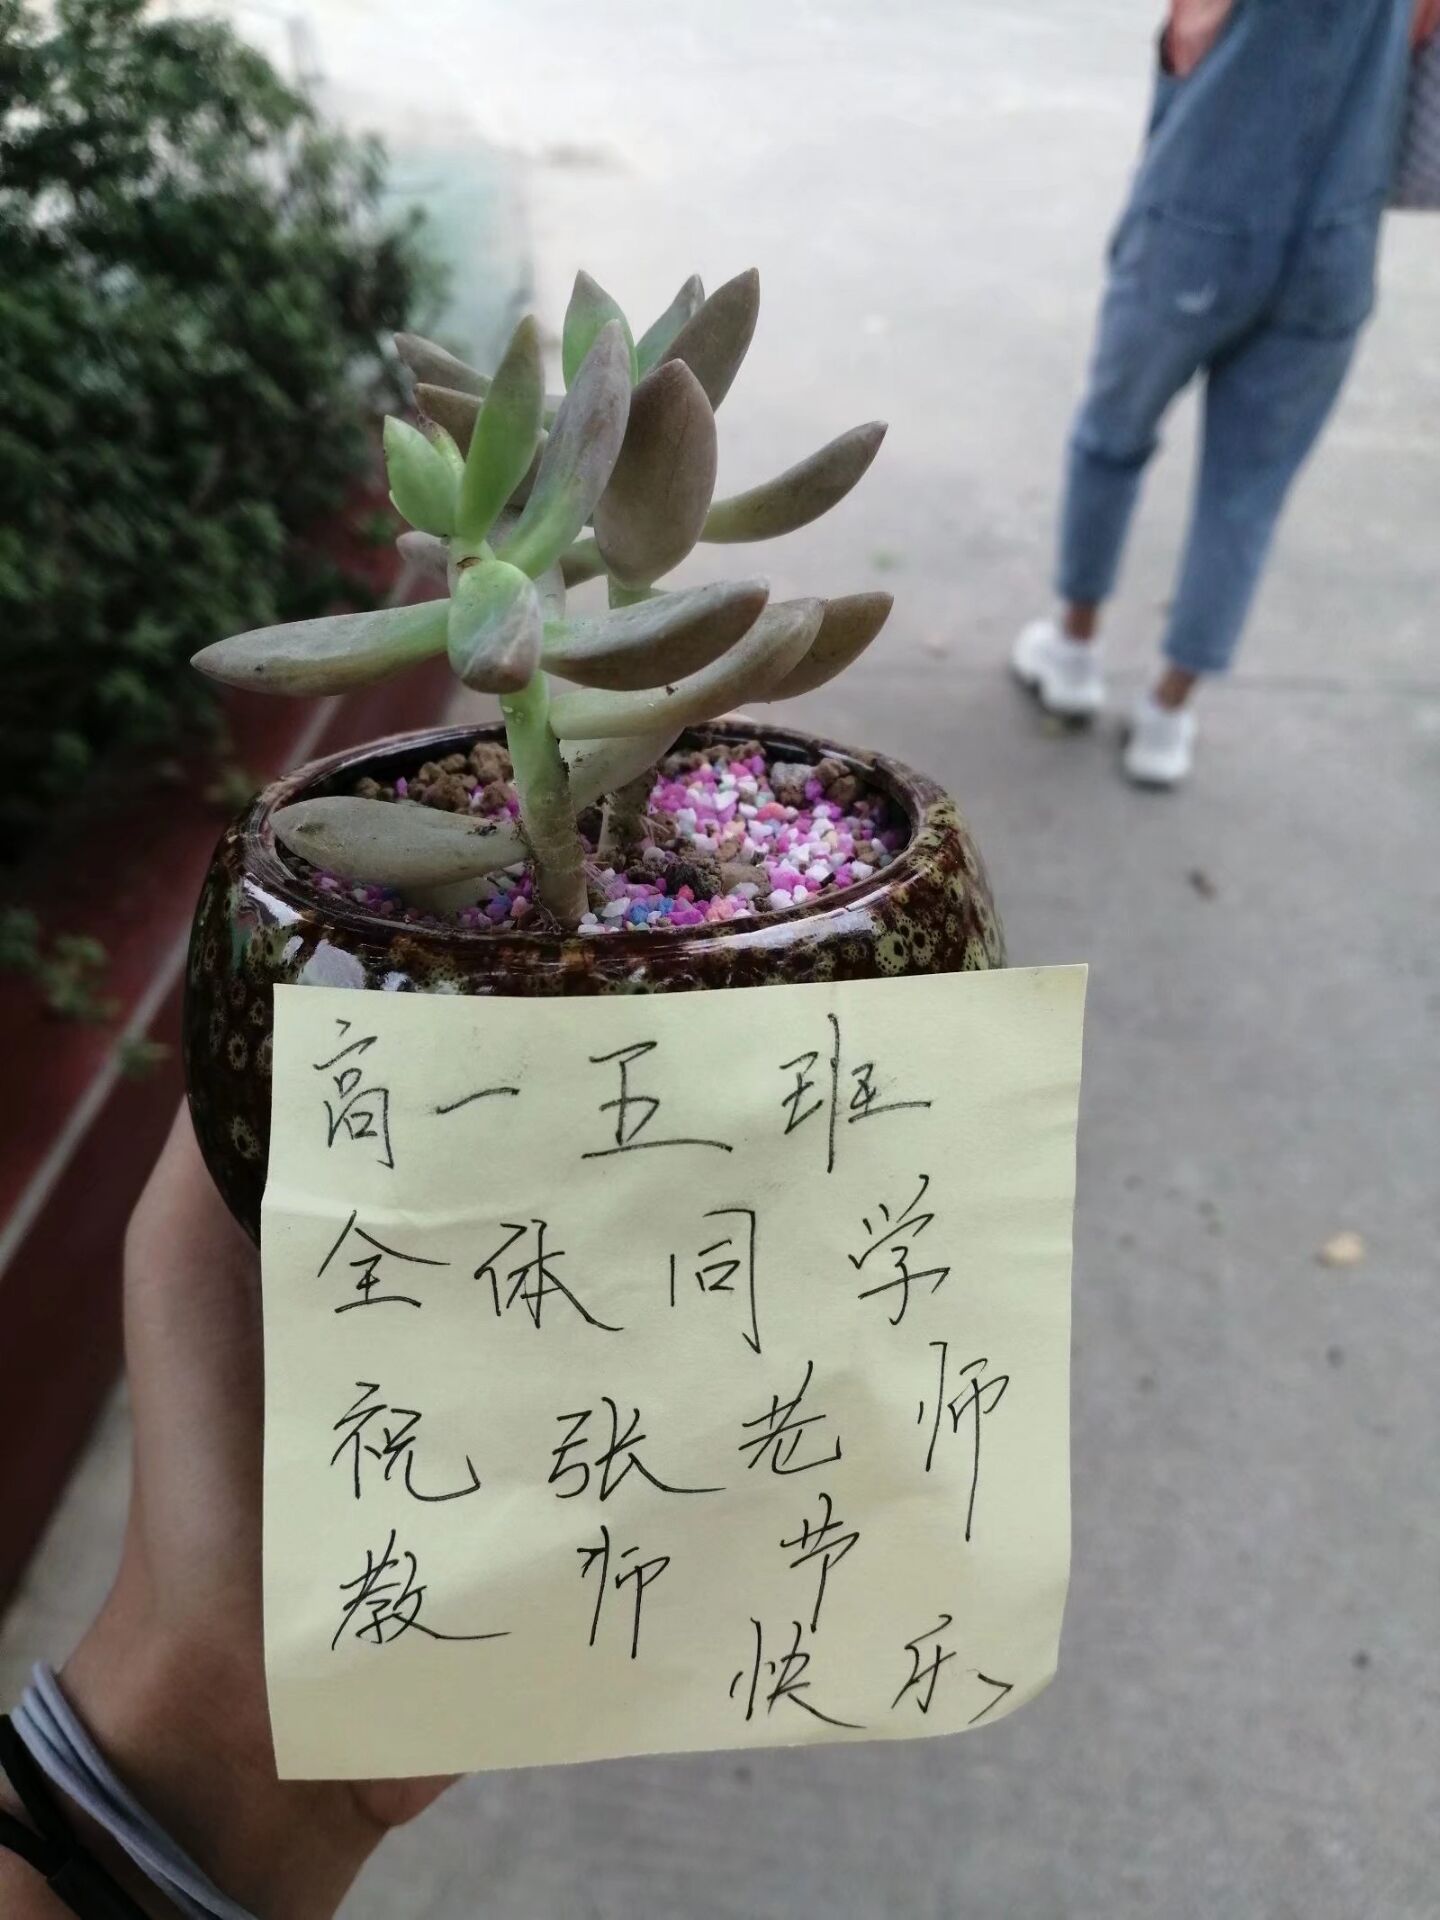 高一五班
全体同学
祝张老师
教师节
快乐